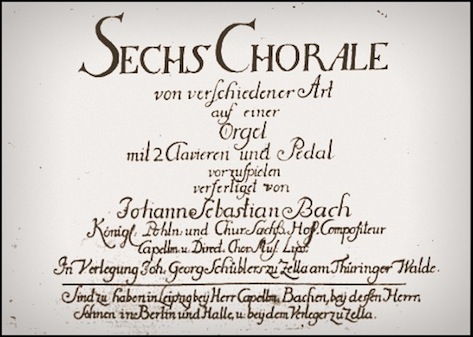 SECHS CHORALE
von verschiedener Art
auf einer
Orgel
mit 2 Clavieren und Pedal
vorzuspielen
verfertiget von
Johann Sebastian Bach
Königl. Pohln. und Chur Sæchs. Hoff-Compositeur
Capellm. u. Direct. Chor. Mus. Lips.
In Verlegung Joh. Georg Schüblers zu Zella am Thüringer Walde.
Sind zu haben in Leipzig bey Herr Capellm. Bachen, bey dessen Herrn
Söhnen in Berlin und Halle, u. bey dem Verleger zu Zella.